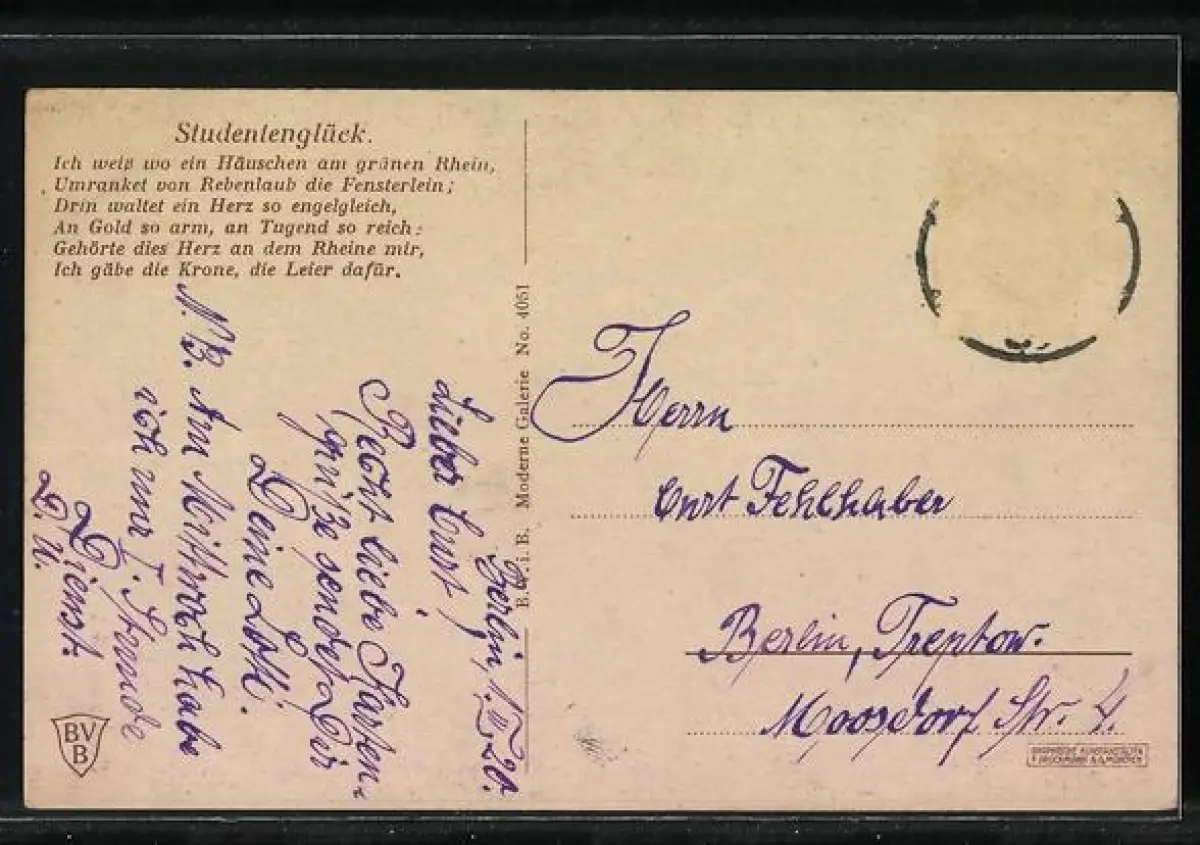 Studentenglück.
Ich weiß wo ein Häuschen am grünen Rhein,
Umranket von Rebenlaub die Fensterlein;
Drin waltet ein Herz so engelgleich,
An Gold so arm, an Tugend so reich:
Gehörte dies Herz an dem Rheine mir,
Ich gäbe die Krone, die Leier dafür.
Berlin, 1. 20.
Lieber Curt!
Recht liebe Karten-
grüße sendet Dir
Deine Lotti.
N. B. Am Mittwoch habe
ich nur 1. Stunde
Dienst.
D. U.
B. i. B. Moderne Galerie No. 4051
Herrn
Curt Fehlhaber
Berlin, Treptow.
Moosdorf Str. 4.
BVB
GRAPHISCHE KUNSTANSTALTEN
F. BRUCKMANN A.G. MÜNCHEN